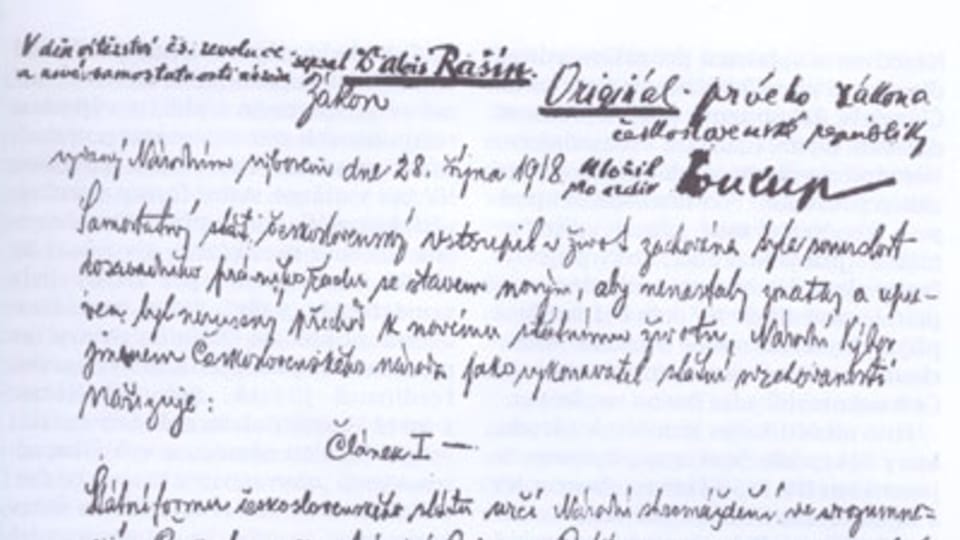 V den vítězství čs. revoluce sepsal Dr Alois Rašín
a nové samostatnosti národa
Zákon
Originál prvého zákona
československé republiky
vydaný Národním výborem dne 28. října 1918
uložil
pro archiv Soukup
Samostatný stát československý vstoupil v život. zachována byla souvislost
dosavadního právního řádu se stavem novým, aby nenastaly zmatky a upra-
ven byl nerušený přechod k novému státnímu životu, Národní Výbor
jménem Československého národa jako vykonavatel státní svrchovanosti
nařizuje:
Článek I
Státní formu československého státu určí Národní shromáždění ve srozumně-